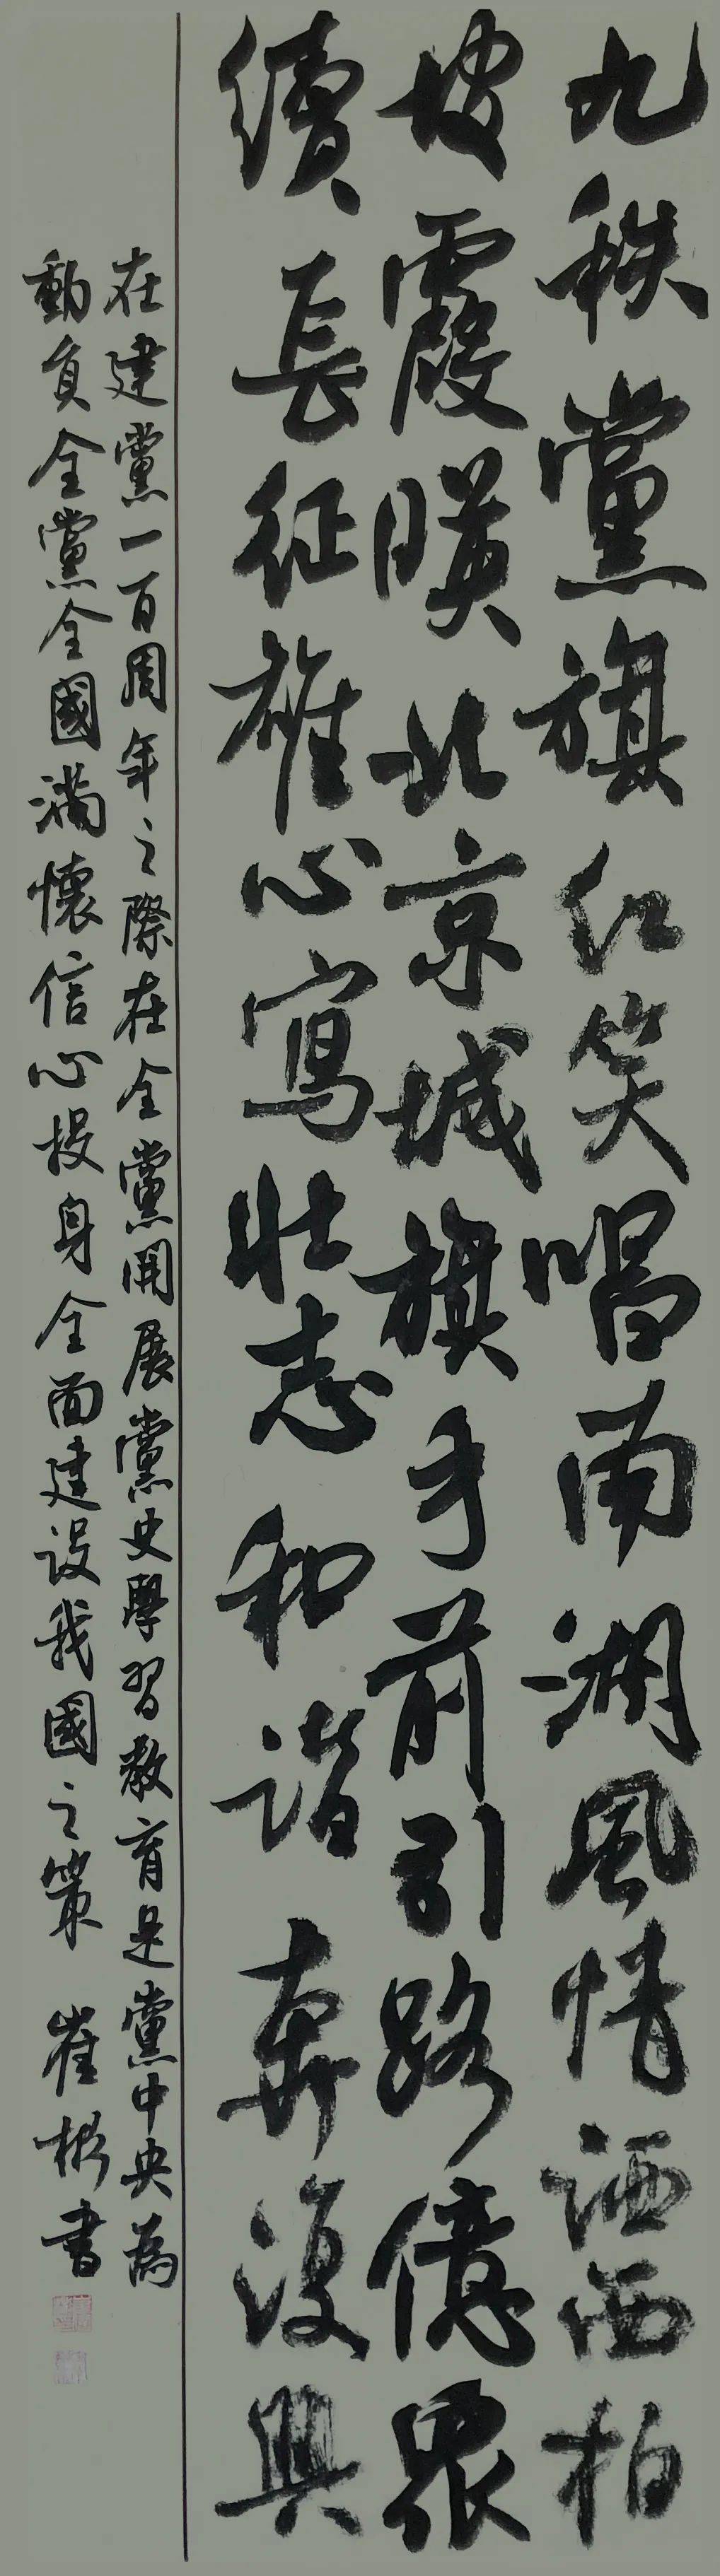 九秩黨旗红笑唱南湖風情洒西柏
坡霞暎北京城旗手前引路億眾
續長征雄心寫壯志和諧奔復興
在建黨一百周年之際在全黨開展黨史學習教育是黨中央為
動員全黨全國滿懷信心投身全面建设我國之策 崔彬書